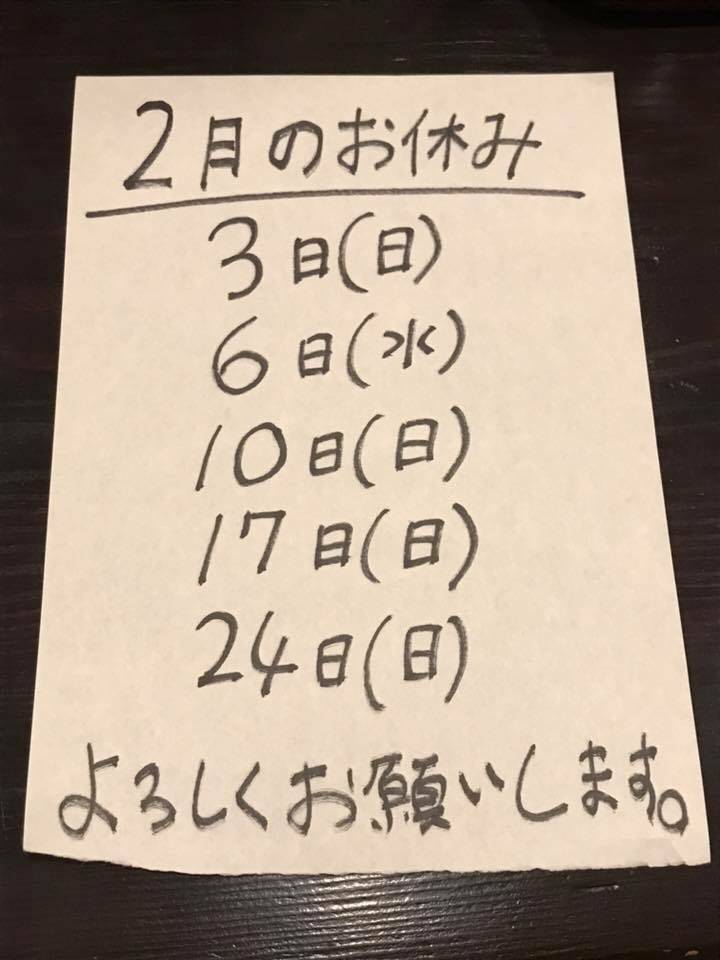 2月のお休み
3日(日)
6日(水)
10日(日)
17日(日)
24日(日)
よろしくお願いします。